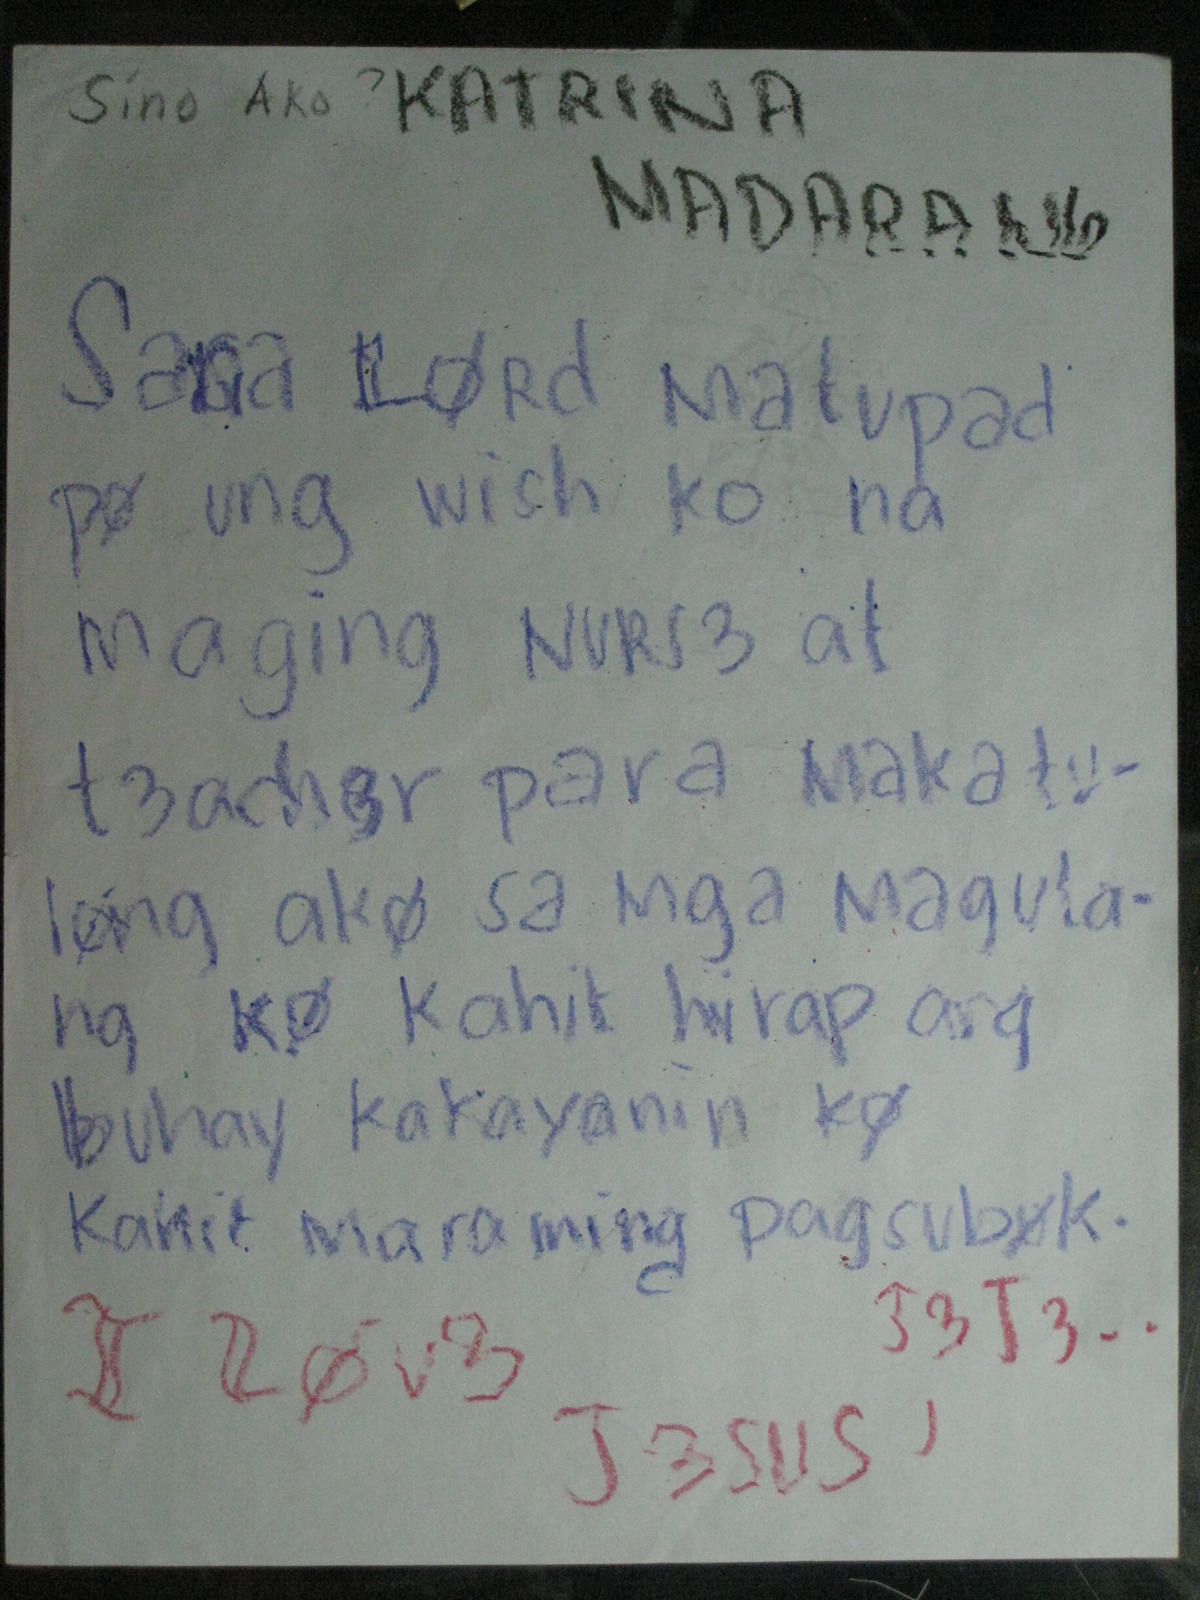 Sino Ako? KATRINA
MADARANG
Sana LØRd Matupad
pø ung wish ko na
maging NURS3 at
t3ach3r para Makatu-
løng akø sa mga Magula-
ng kø kahit hirap ang
buhay kakayanin kø
Kahit maraming pagsubøk.
J3J3..
I LØv3
J3SUS'